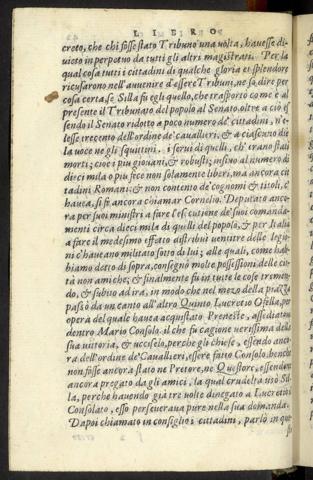 LIBRO
creto, che chi fosse stato Tribuno una volta, havesse di-
vieto in perpetuo da tutti gli altri magistrati. Per la
qual cosa tutti i cittadini di qualche gloria et splendore
ricusarono nell'avvenire d'essere Tribuni, ne so dire per
cosa certa, se Silla fu egli quello, che trasportò come è al
presente il Tribunato del popolo al Senato, oltre a ciò es
sendo il Senato ridotto a poco numero de' cittadini, v'e-
lesse trecento dell'ordine de' cavallieri, & a ciascuno diè
la voce ne gli squittini. i servi di quelli, ch'erano stati
morti; cioè i piu giovani, & robusti; insino al numero di
dieci mila o piu fece non solamente liberi, ma ancora cit
tadini Romani: & non contento de' cognomi & titoli, c'
havea, si fè ancora chiamar Cornelio. Deputato anco-
ra per suoi ministri a fare l'essecutione de' suoi comanda-
menti circa dieci mila di quelli del popolo, & per Italia
a fare il medesimo effetto distribuì ventitre delle legio-
ni c'havevano militato sotto di lui; alle quali, come hab-
biamo detto di sopra, consegnò molte possessioni, delle cit-
tà non amiche; & finalmente fu in tutte le cose tremen-
do, & subito ad ira, in modo che nel mezo della piazza
passò da un canto all'altro Quinto Lucretio Ofella, per
opera del quale havea acquistato Preneste, assediatovi
dentro Mario Consolo. il che fu cagione verissima della
sua vittoria, & uccisel o, perche gli chiese, essendo anco-
ra dell'ordine de' Cavallieri, essere fatto Consolo, benche
non fosse ancora stato ne Pretore, ne Questore, essendone
ancora pregato da gli amici, la qual crudeltà usò Sil-
la, perche havendo già tre volte dinegato a Lucretio il
Consolato, esso perseverava pure nella sua domanda.
Dapoi chiamato in consiglio i cittadini, parlò in que